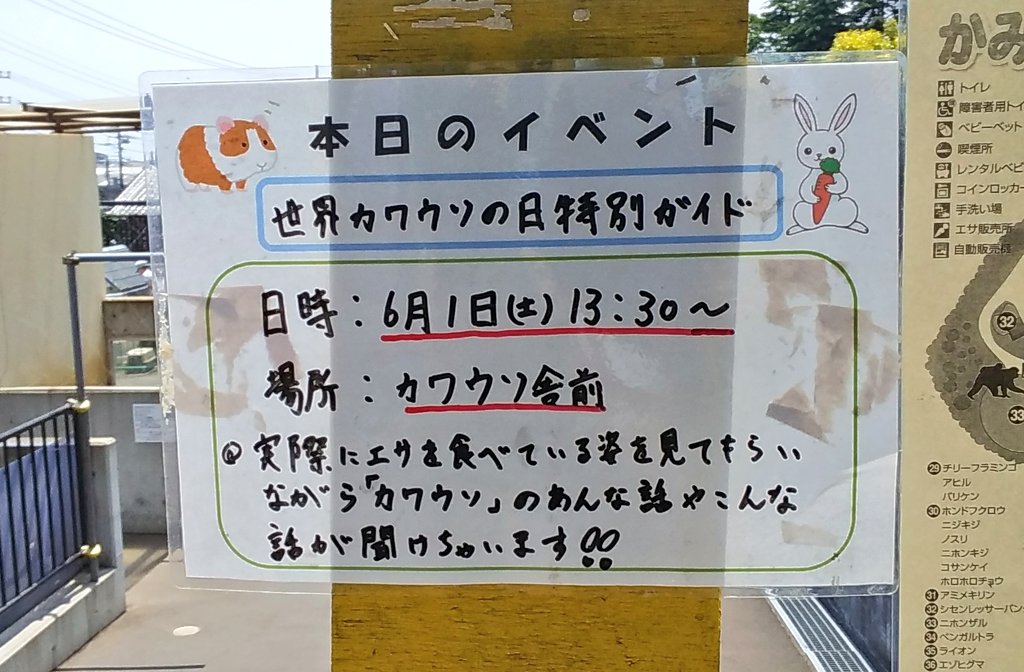 本日のイベント
世界カワウソの日特別ガイド
日時：6月1日(土)13:30～
場所：カワウソ舎前
◎実際にエサを食べている姿を見てもらい
ながら「カワウソ」のあんな話やこんな
話が聞けちゃいます!!
かみ
トイレ
障害者用トイ
ベビーベット
喫煙所
レンタルベビ
コインロッカ
手洗い場
エサ販売所
自動販売機
32
33
29 チリーフラミンゴ
アヒル
バリケン
30 ホンドフクロウ
ニジキジ
ノスリ
ニホンキジ
コサンケイ
ホロホロチョウ
31 アミメキリン
32 シセンレッサーパン
33 ニホンザル
34 ベンガルトラ
35 ライオン
36 エゾヒグマ